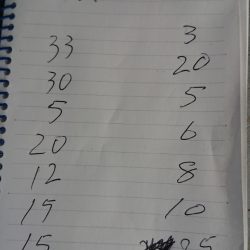 33 3
30 20
5 5
20 6
12 8
15 10
15 25